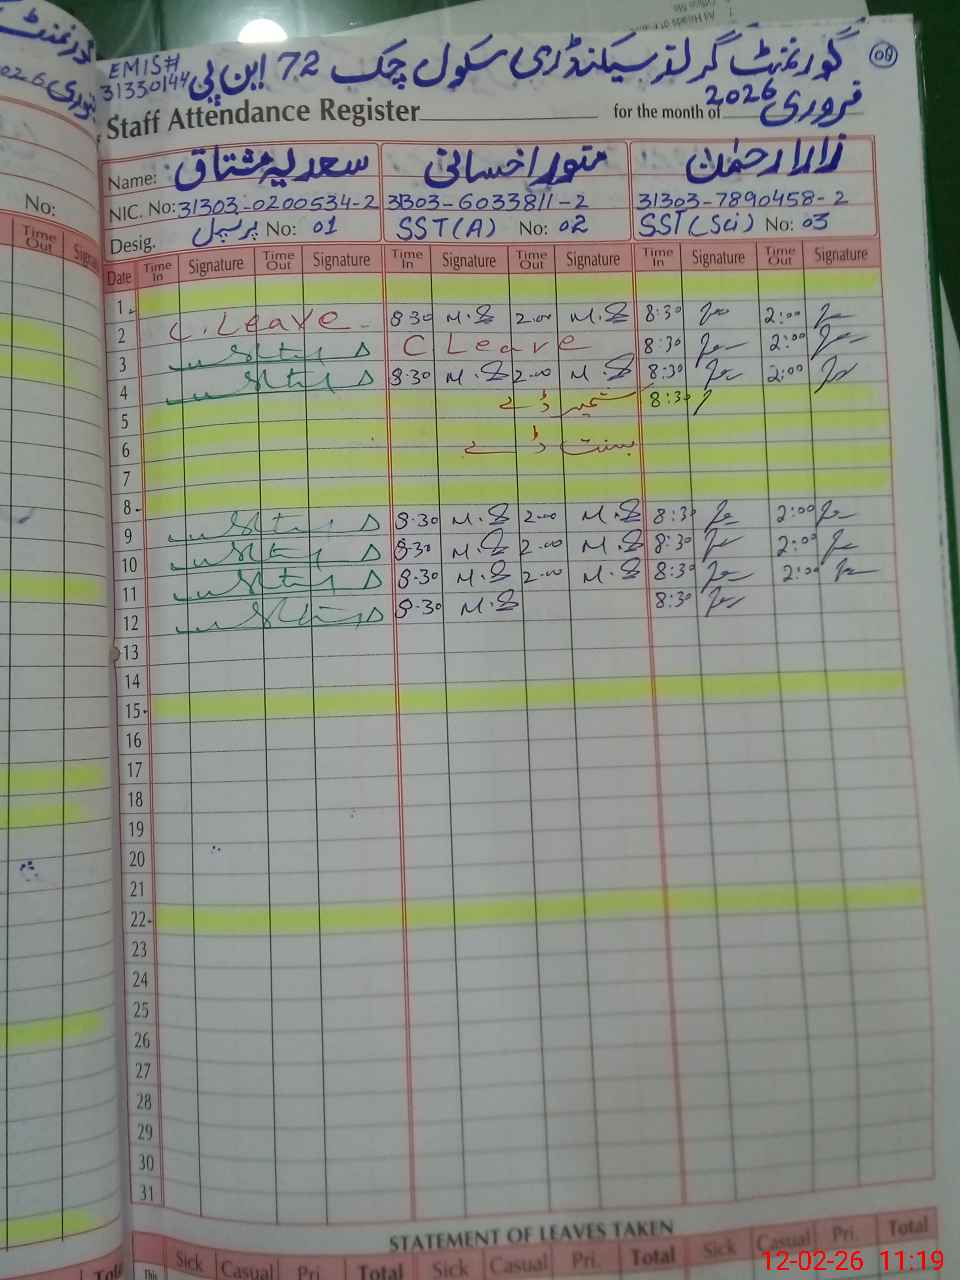 گورنمنٹ گرلز سیکنڈری سکول چک 72 این پی
EMIS# 31330144
08
Staff Attendance Register for the month of فروری 2026
Name: سعدیہ مشتاق
NIC. No: 31303-0200534-2 31303-6033811-2 31303-7890458-2
Desig. پرنسپل No: 01 SST(A) No: 02 SST(Sci) No: 03
Date Time In Signature Time Out Signature Time In Signature Time Out Signature Time In Signature Time Out Signature
1
2 C. Leave 8 30 M.S 2.00 M.S 8:30 2:00
3 C Leave 8:30 2:00
4 8.30 M.S 2.00 M.S 8:30 2:00
5 کشمیر ڈے 8:30
6 بسنت ڈے
7
8
9 8.30 M.S 2.00 M.S 8:30 2:00
10 8.30 M.S 2.00 M.S 8:30 2:00
11 8.30 M.S 2.00 M.S 8:30 2:00
12 8.30 M.S 8:30
13
14
15
16
17
18
19
20
21
22
23
24
25
26
27
28
29
30
31
STATEMENT OF LEAVES TAKEN
This Sick Casual Pri. Total Sick Casual Pri. Total Sick Casual Pri. Total
12-02-26 11:19
No:
Time Out